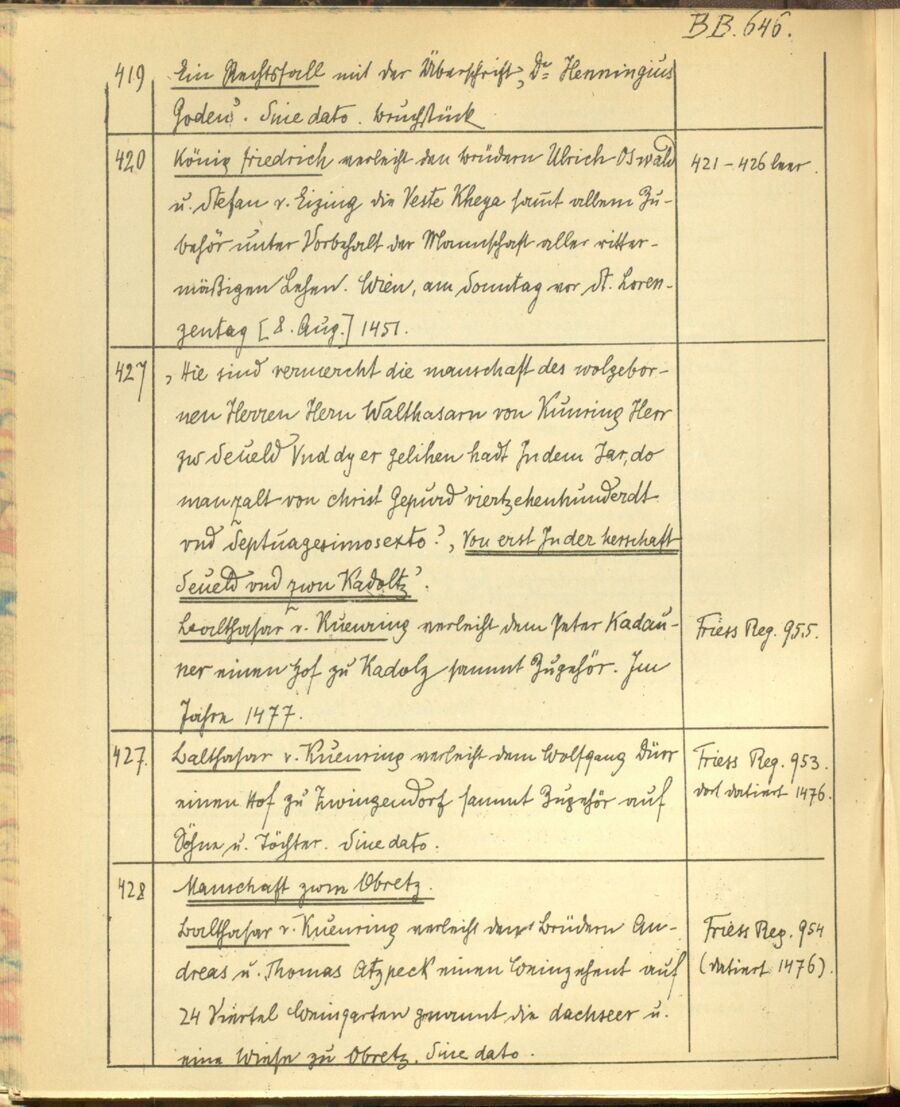 BB. 646.
419 Ein Rechtsfall mit der Überschrift „Dr Henningius
Goden“. Sine dato. Bruchstück
420 König Friedrich verleiht den Brüdern Ulrich Oswald 421–426 leer.
u. Stefan v. Eizing die Veste Kheya samt allem Zu-
behör unter Vorbehalt der Mannschaft aller ritter-
mäßigen Lehen. Wien, am Sonntag vor St. Loren-
zentag [8. Aug.] 1451.
427 „Hie sind vermercht die manschaft des wolgebor-
nen Herren Hern Walthasarn von Kunring Herr
zw Seueld Vnd dy er gelihen hadt Jn dem Jar, do
man zalt von christ Gepurd viertzehenhunderdt
vnd Septuagesimosexto“, „Von erst Jn der herschaft
Seueld vnd zwn Kadoltz“.
Balthasar v. Kuenring verleiht dem Peter Kadau- Friess Reg. 955.
ner einen Hof zu Kadolz sammt Zugehör. Im
Jahre 1477.
427. Balthasar v. Kuenring verleiht dem Wolfgang Dürr Friess Reg. 953.
einen Hof zu Zwingendorf sammt Zugehör auf dort datiert 1476.
Söhne u. Töchter. Sine dato.
428 Manschaft zwm Obretz.
Balthasar v. Kuenring verleiht den Brüdern An- Friess Reg. 954
dreas u. Thomas Atzpeck einen Weinzehent auf (datiert 1476).
24 Viertel Weingarten genannt die dachseer u.
eine Wiese zu Obretz. Sine dato.